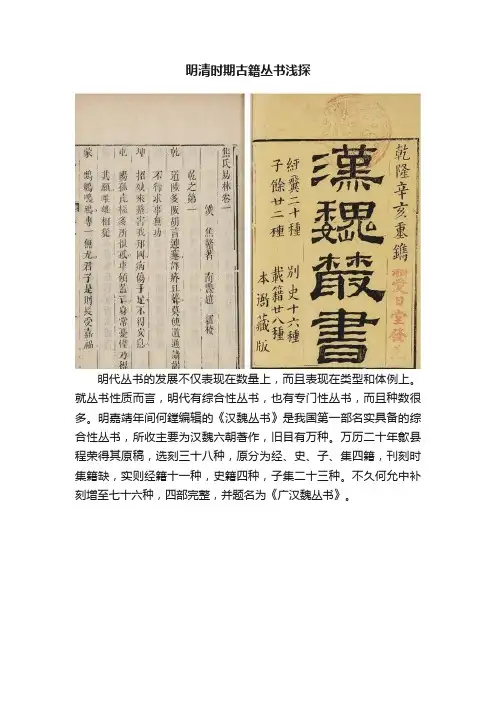 明清时期古籍丛书浅探
焦氏易林卷一
漢 焦贛著 南豐趙 校
乾之第一
乾 道陟多阪胡言連蹇譯瘖且聾莫使道通請謁
不行求事無功
坤 招殃來螫害我邦國病傷手足不得安息
屯 陽孤亢極多所恨惑車傾蓋亡身常憂惶乃得
其願雌雄相從
蒙 鳲鳩專一無尤君子是則長受嘉福
乾隆辛亥重鐫
愛日堂發
漢魏叢書
經翼二十種 別史十六種
子餘廿二種 載籍廿八種
本衙藏版
明代丛书的发展不仅表现在数量上，而且表现在类型和体例上。
就丛书性质而言，明代有综合性丛书，也有专门性丛书，而且种数很
多。明嘉靖年间何鏜编辑的《汉魏丛书》是我国第一部名实具备的综
合性丛书，所收主要为汉魏六朝著作，旧目有万种。万历二十年歙县
程荣得其原稿，选刻三十八种，原分为经、史、子、集四籍，刊刻时
集籍缺，实则经籍十一种，史籍四种，子集二十三种。不久何允中补
刻增至七十六种，四部完整，并题名为《广汉魏丛书》。